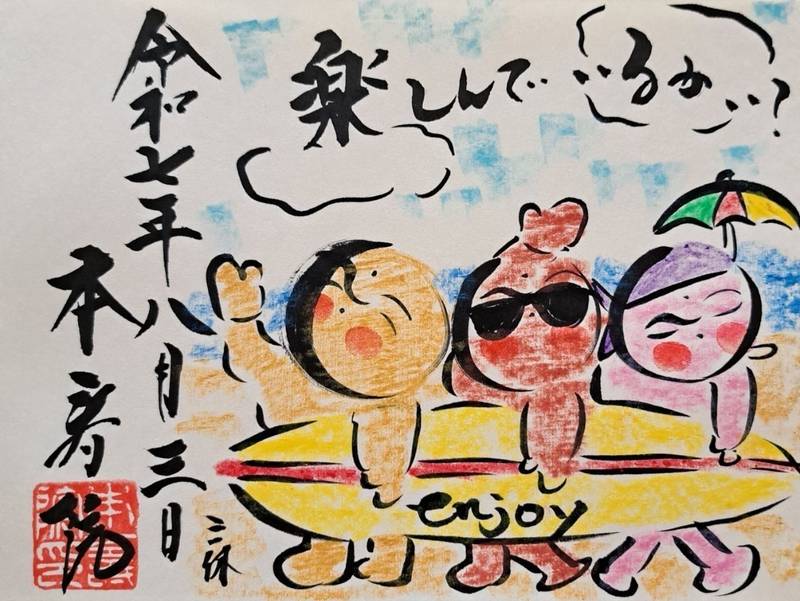 令和七年八月三日
本寿院
楽しんで
いるかい?
enjoy
三休